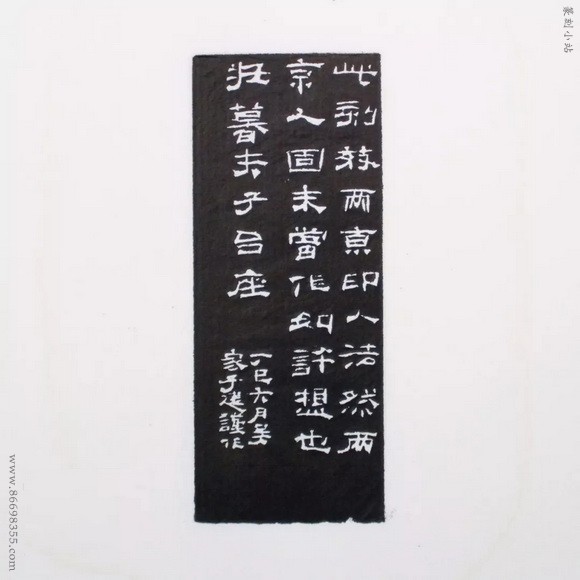 篆刻小站
此刻效兩京印人法然兩
京人固未嘗作如許想也
暮夫子台座
丁巳六月
家子謹作
www.86698355.com